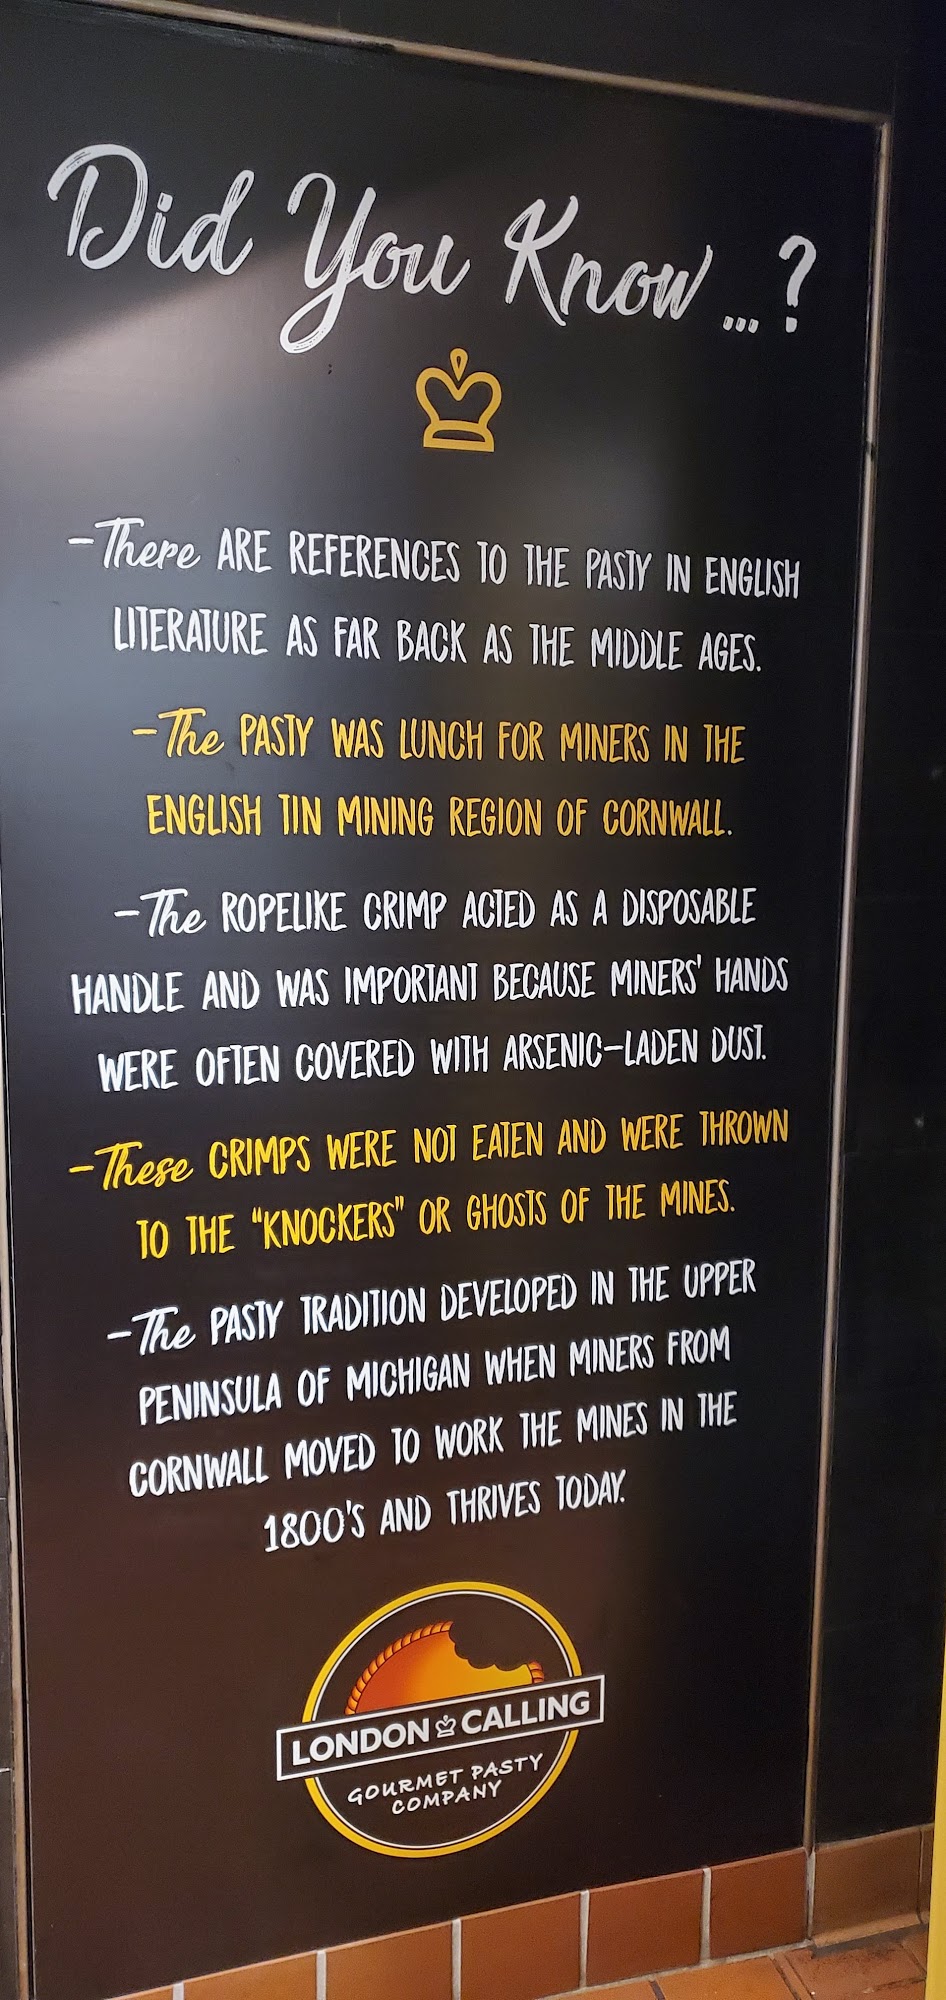 Did You Know ...?
-There ARE REFERENCES TO THE PASTY IN ENGLISH
LITERATURE AS FAR BACK AS THE MIDDLE AGES.
-The PASTY WAS LUNCH FOR MINERS IN THE
ENGLISH TIN MINING REGION OF CORNWALL.
-The ROPELIKE CRIMP ACTED AS A DISPOSABLE
HANDLE AND WAS IMPORTANT BECAUSE MINERS' HANDS
WERE OFTEN COVERED WITH ARSENIC-LADEN DUST.
-These CRIMPS WERE NOT EATEN AND WERE THROWN
TO THE "KNOCKERS" OR GHOSTS OF THE MINES.
-The PASTY TRADITION DEVELOPED IN THE UPPER
PENINSULA OF MICHIGAN WHEN MINERS FROM
CORNWALL MOVED TO WORK THE MINES IN THE
1800'S AND THRIVES TODAY.
LONDON CALLING
GOURMET PASTY
COMPANY